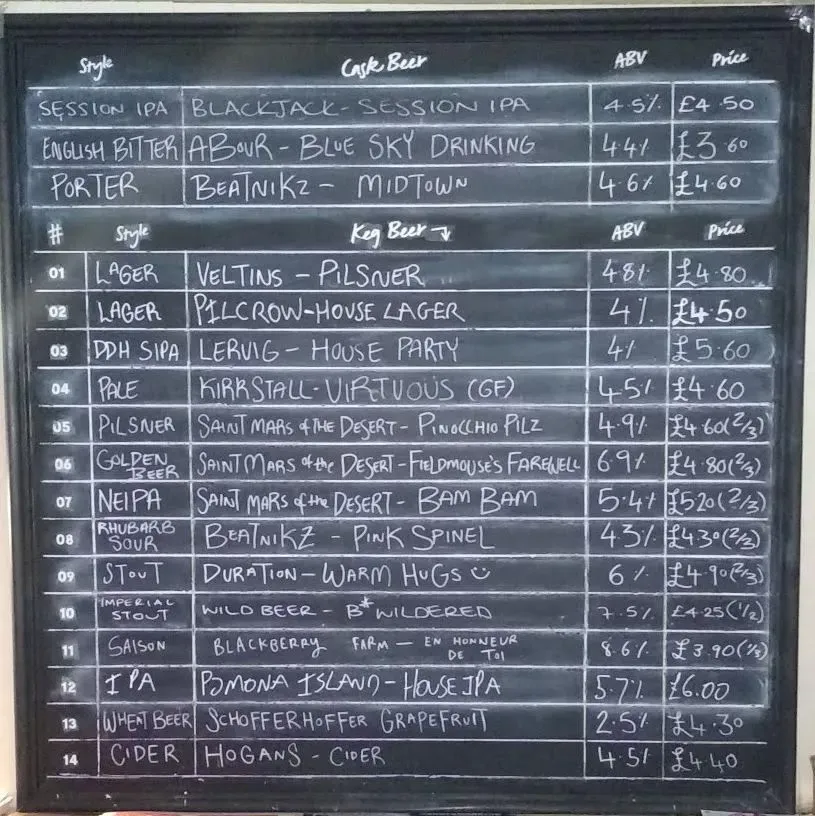 Style Cask Beer ABV Price
SESSION IPA BLACKJACK - SESSION IPA 4.5% £4.50
ENGLISH BITTER ABOUR - BLUE SKY DRINKING 4.4% £3.60
PORTER BEATNIKZ - MIDTOWN 4.6% £4.60
# Style Keg Beer ABV Price
01 LAGER VELTINS - PILSNER 4.8% £4.80
02 LAGER PILCROW-HOUSE LAGER 4% £4.50
03 DDH SIPA LERVIG - HOUSE PARTY 4% £5.60
04 PALE KIRKSTALL-VIRTUOUS (GF) 4.5% £4.60
05 PILSNER SAINT MARS of THE DESERT - PINOCCHIO PILZ 4.9% £4.60(2/3)
06 GOLDEN BEER SAINT MARS of the DESERT-FIELDMOUSE'S FAREWELL 6.9% £4.80(2/3)
07 NEIPA SAINT MARS of the DESERT - BAM BAM 5.4% £5.20(2/3)
08 RHUBARB SOUR BEATNIKZ - PINK SPINEL 4.3% £4.30(2/3)
09 STOUT DURATION - WARM HUGS 6% £4.90(2/3)
10 IMPERIAL STOUT WILD BEER - B*WILDERED 7.5% £4.25(1/2)
11 SAISON BLACKBERRY FARM - EN HONNEUR DE TOI 8.6% £3.90(1/3)
12 IPA POMONA ISLAND - HOUSE IPA 5.7% £6.00
13 WHEAT BEER SCHOFFERHOFFER GRAPEFRUIT 2.5% £4.30
14 CIDER HOGANS - CIDER 4.5% £4.40